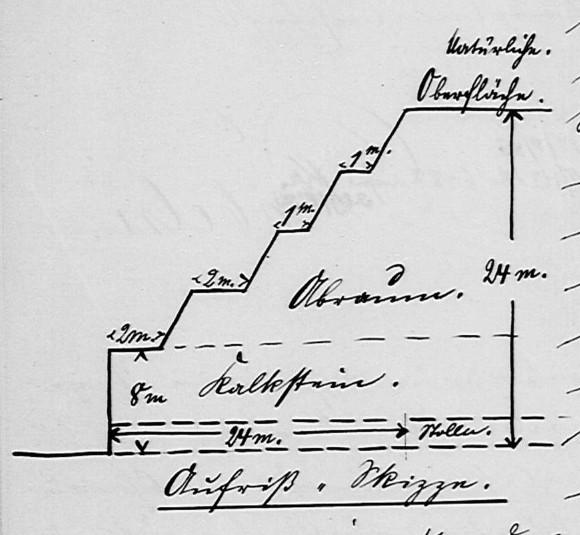 Natürliche.
Oberfläche.
1 m.
1 m.
2 m.
Abraum.
24 m.
2 m.
8 m
Kalkstein.
24 m.
Stollen.
Aufriß - Skizze.